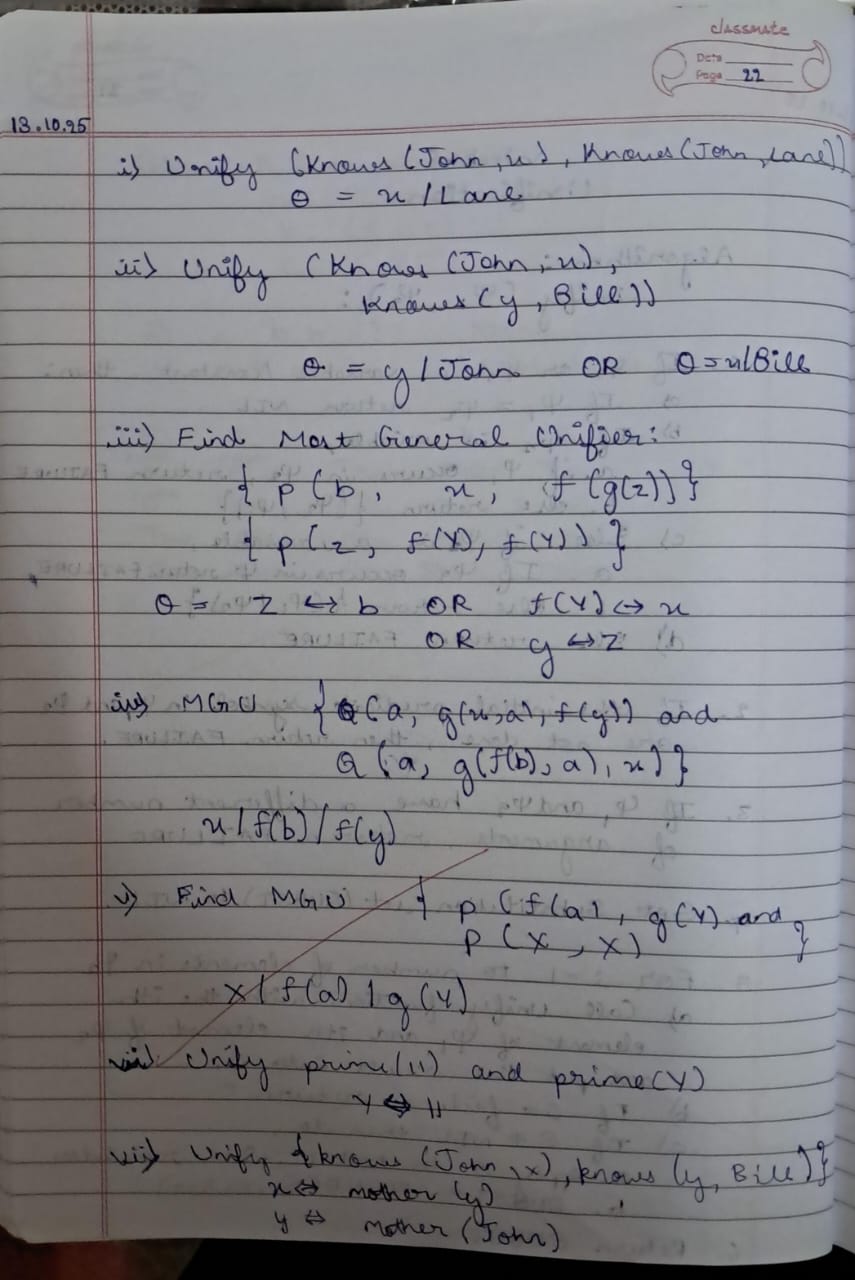 classmate
Date
Page 22
13.10.25
i) Unify (Knows (John, x), Knows (John, Lane))
θ = x / Lane
ii) Unify (Knows (John, x),
Knows (y, Bill))
θ = y / John OR θ = x/Bill
iii) Find Most General Unifier:
{ p (b, x, f (g(z)) }
{ p (z, f(Y), f(Y)) }
θ = Z ↔ b OR f(Y) ↔ x
OR g ↔ Z
iv) MGU { Q (a, g(x, a), f(y)) and
Q (a, g(f(b), a), x) }
x / f(b) / f(y)
v) Find MGU { p (f(a), g(Y) and
p (X, X) }
X / f(a) / g(Y)
Unify prime(11) and prime(Y)
Y ⇔ 11
vii) Unify {knows (John, x), knows (y, Bill)}
x ⇔ mother (y)
y ⇔ mother (John)